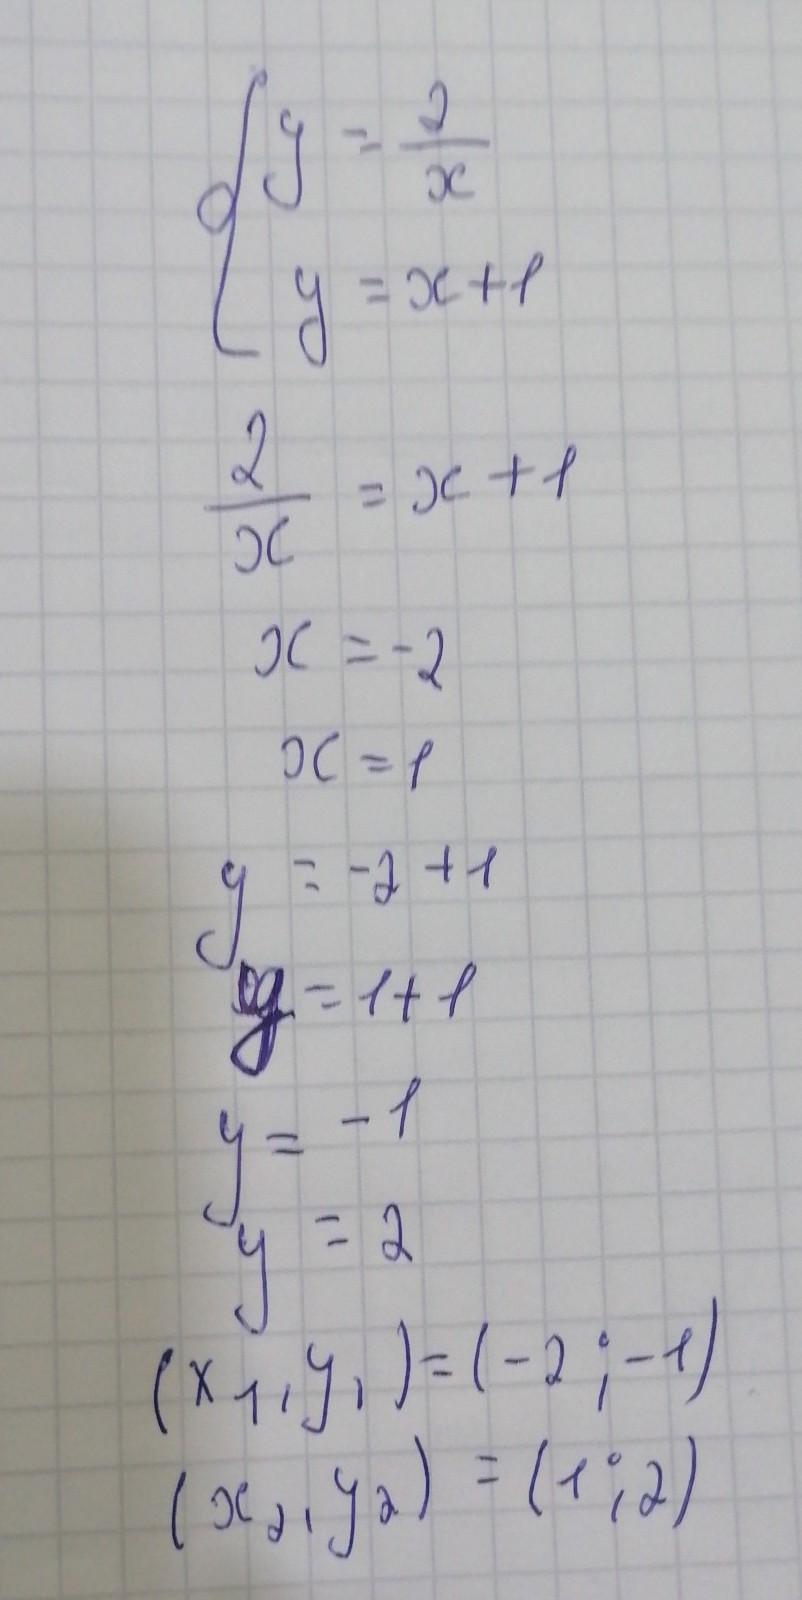 y = 2/x
y = x+1
2/x = x+1
x = -2
x = 1
y = -2+1
y = 1+1
y = -1
y = 2
(x₁, y₁) = (-2; -1)
(x₂, y₂) = (1; 2)